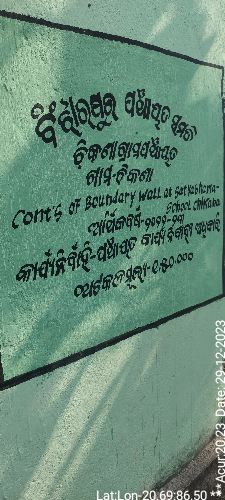 ବିଂଝାରପୁର ପଞ୍ଚାୟତ ସମିତି
ଚିକଣା ଗ୍ରାମପଞ୍ଚାୟତ
ଗ୍ରାମ-ଚିକଣା
Cont's of Boundary wall at Satyabhama-
School Chikana
ଆର୍ଥିକବର୍ଷ-୨୦୨୨-୨୩
କାର୍ଯ୍ୟନିର୍ବାହୀ-ପଞ୍ଚାୟତ କାର୍ଯ୍ୟ ନିର୍ବାହୀ ଅଧିକାରୀ
ଅଟକଳମୂଲ୍ୟ-୧୫୦,୦୦୦
Lat:Lon-20.69:86.50 **Acur 20.23 Date: 29-12-2023